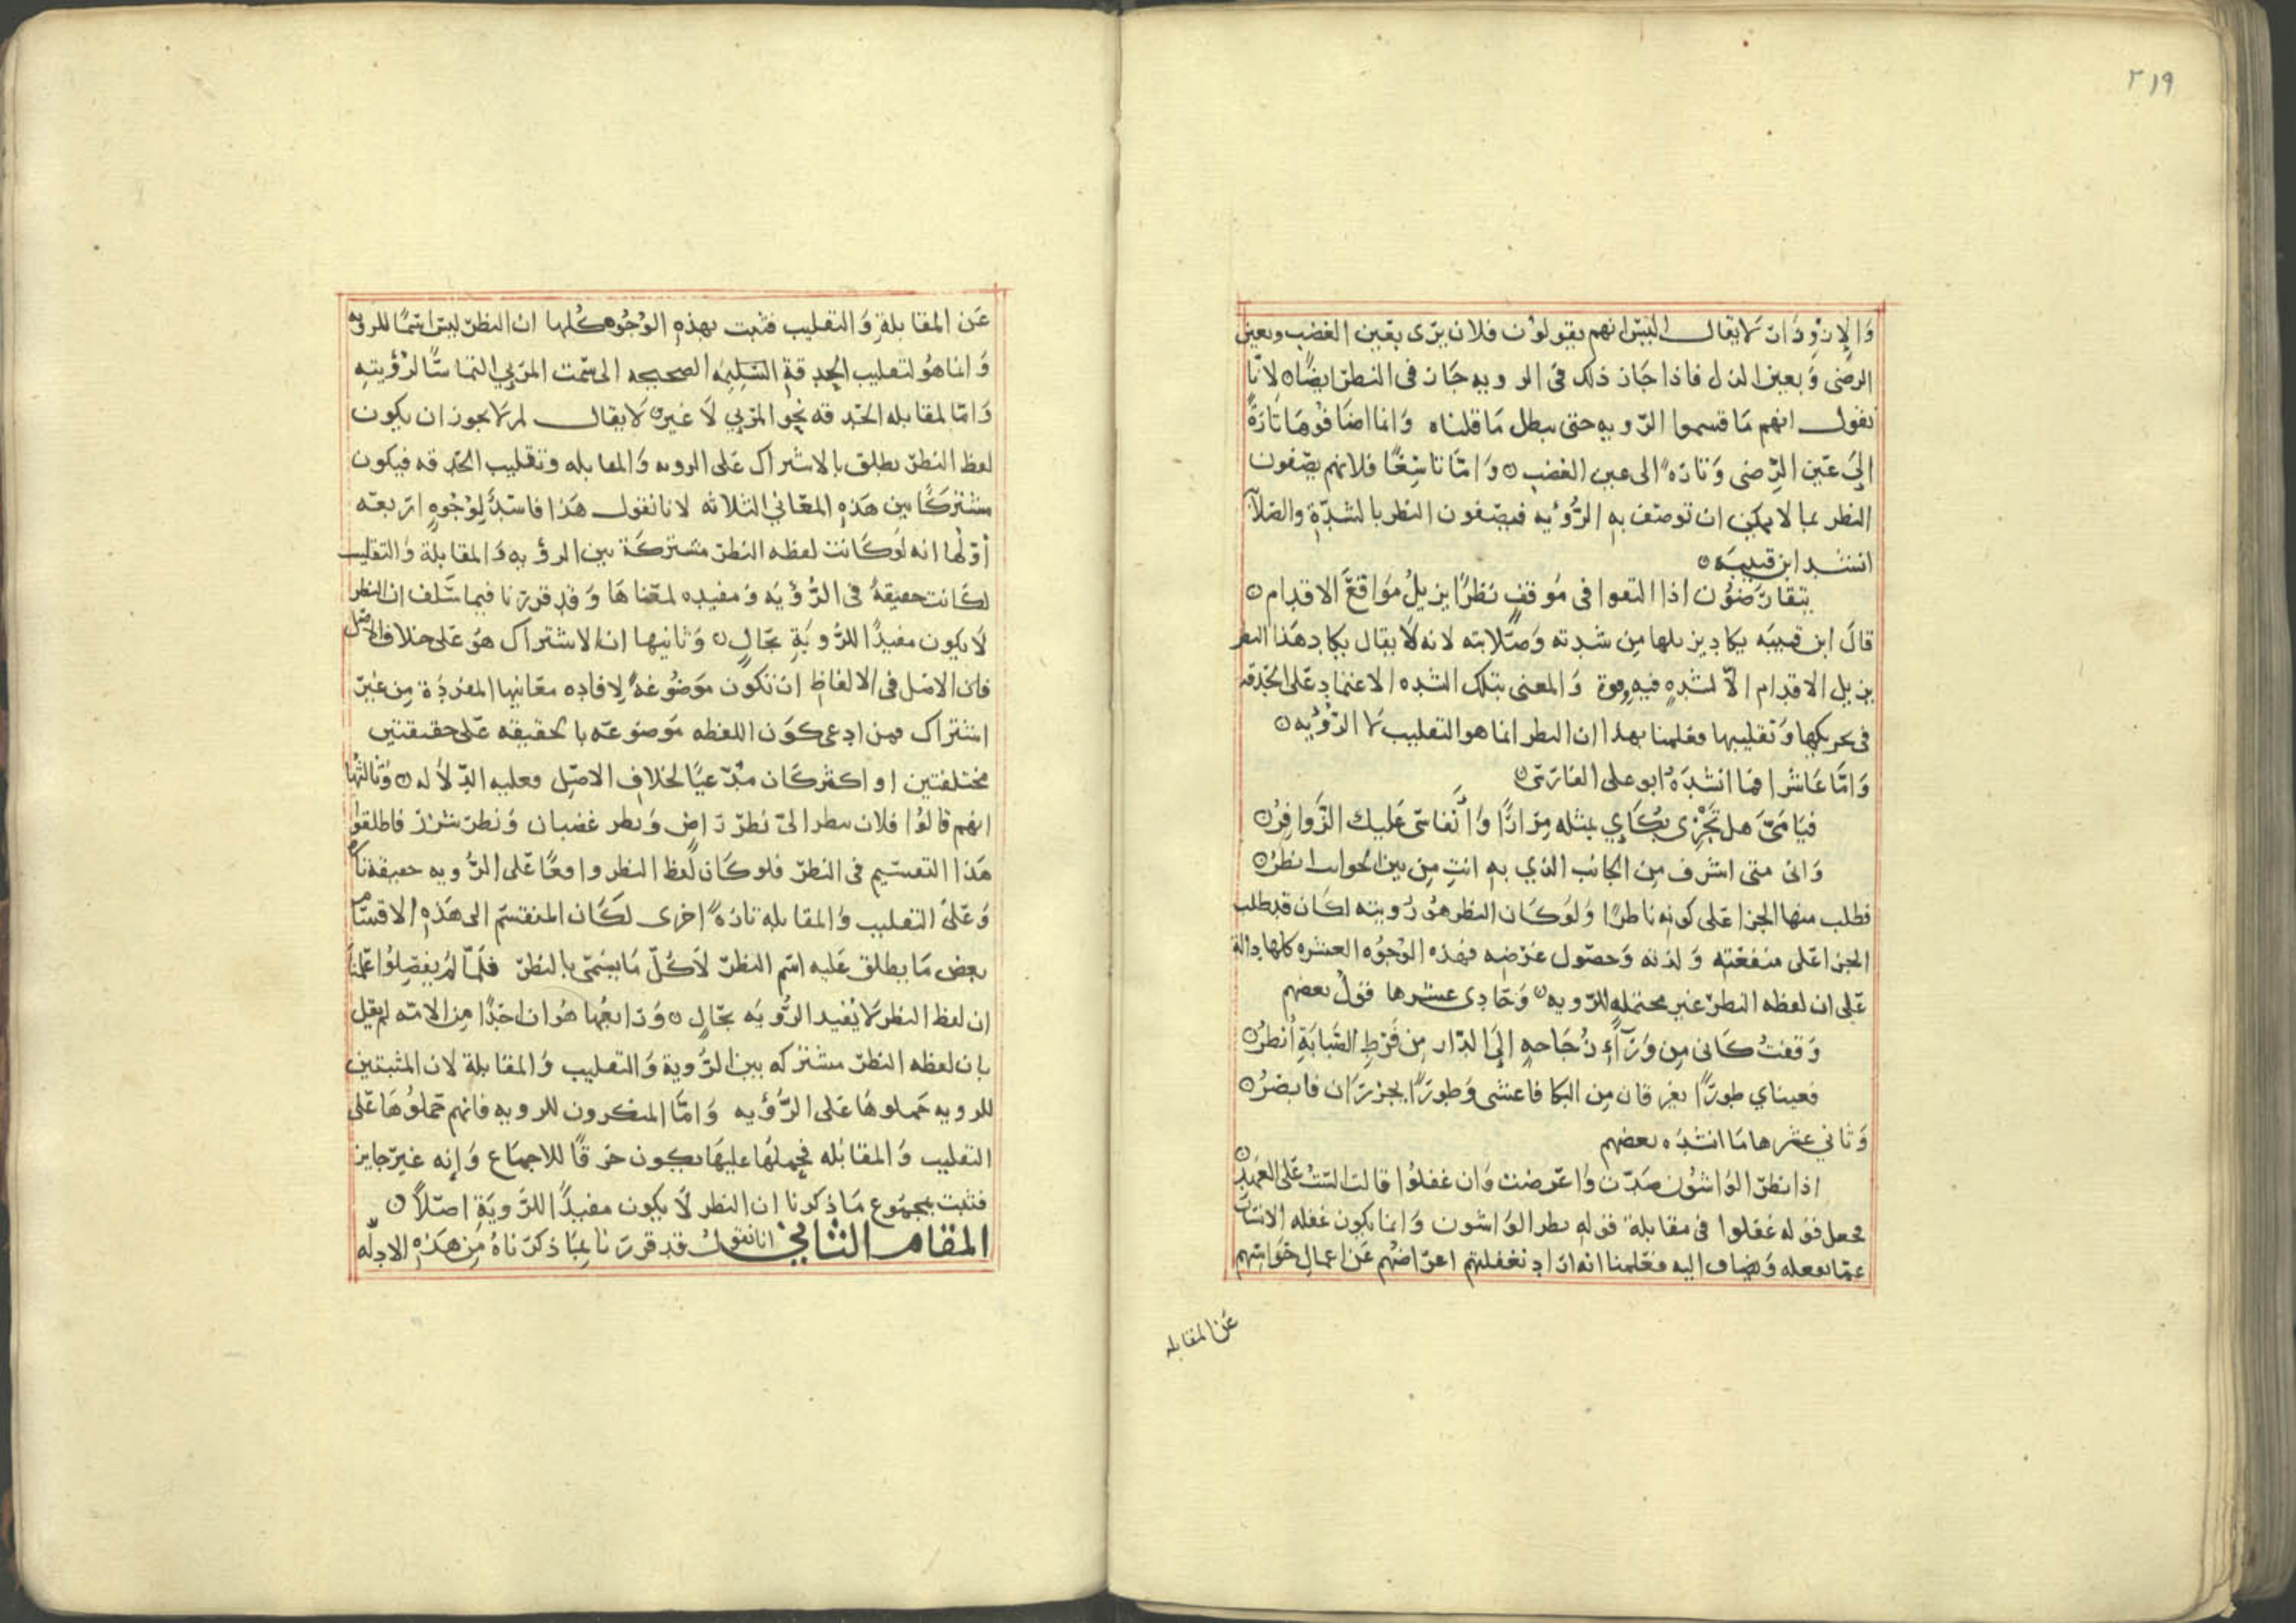 ٢١٩
وَالإزْوِدَان لا يقال اليس انهم يقولون فلان يرى بعين الغضب وبعين
الرضى وَبعين الذل فاذا جَاز ذلك في الرويه جَاز في النظر ايضًا لانّا
نقول انهم مَا قسموا الرّويه حتى يبطل مَا قلناه وَانما اضَافُوهَا تَارَةً
إلىَ عَين الرِّضى وَتارَهً الى عين الغضب وَامّا تاسِعًا فلانهم يصفون
النظر بما لا يمكن ان توصف به الرُّؤيه فيصفون النظر بالشدّة والصّلاَ
انشد ابن قتيبَه
يتقارَضوُن اذا التقوا في مُوقفٍ نظرًا يزيلُ مَوَاقعَ الاقدام
قالَ ابن قتيبَه يكاد يزيلها مِن شدته وَصَلابته لانه لاَ يقال يكاد هَذا النظر
يزيل الاقدام الاّ لشدهٍ فيهِ وقوة وَالمعنى بتلك الشده الاعتماد عَلى الحَدقه
في تحريكها وَتقليبها فعَلمنا بهذا ان النظر انما هو التقليب لا الرّؤيه
وَامَّا عَاشرا فما انشدَهُ ابو على الفارسَى
فيَا مَىّ هل يَجْزِى بُكَاءِي بمثله مِرَارًا وَأَنفاسَى عَليك الزَّوافِرُ
وَانى متى اشرف مِن الجَانب الذي به انتِ مِن بين الجوانب انظرُ
فطلب منها الجزا عَلى كونه ناظرًا وَلوكَان النظر هوُ رُويته لكان قد طلب
الجزا عَلى منفعَته وَلذته وَحصُول غرَضِه فهذه الوُجوُه العشره كلها دالة
عَلى ان لفظه النظر غير محتمله للرّويه وَحَادِى عشرها قولُ بعضهم
وَقفتُ كَانى مِن وَرَآءِ زُجَاجهٍ إلىَ الدّار مِن فَرطِ الصَّبَابَةِ أنظرُ
فعيناي طورًا يغرقان مِن البكا فاعشى وَطورًا يحْرَان فابصُرُ
وَثاني عَشرها مَا انشدَه بعضهم
اذا نظرَ الوُاشوُن صَدّت وَاعَرضت وَان غفلوُا قالت الستَ عَلى العَهدِ
فجعل قوله غفلوا في مقابلة قوله نظر الوَاشون وَانما يكون غفله الانسَان
عمّا يفعله وَيضاف اليه فعَلمنا انه ارَاد بغفلتهم اعرَاضهُم عَن اعمال حَوَاسّهم
عَن المقابله
عَن المقابلةِ وَالتقليب فثبت بهذهِ الوُجُوهِ كُلها ان النظرَ ليسَ اسمًا للرويه
وَانما هوُ لتقليب الحِدقةِ السَلِيمَه الصحيحه الى سَمت المرَئي التماسًا لرؤيته
وَامّا لمقابله الحَدقه نحو المرَئي لاَ غير لاَ يقال لم لا يجوز ان يكون
لفظ النظرَ يطلق بالاشتراك عَلى الرويه وَالمقابله وتقليب الحَدقه فيكون
مشتركًا بين هَذهِ المعَاني الثلاثه لانا نقول هَذا فاسَدٌ لِوجُوهٍ ارَبعَه
أوَلهُا انه لوكَانت لفظه النظر مشتركَة بين الرؤيه وَالمقابلة وَالتقليب
لكَانت حقيقهً في الرُّؤيَه وَمفيده لمعَناهَا وَقد قررَنا فيما سَلف ان النظر
لاَ يكون مفيدًا للرُّويَةِ بحَالٍ وَثانيها ان الاشتراك هوُ عَلى خلاف الاصَل
فان الاصَل في الالفاظ انْ تكون مَوضُوعَهً لافاده معَانيها المفرَدَة مِن غيرَ
اشتراك فمن ادعى كوَن اللفظه مَوضوعَه بالحقيقه عَلى حقيقتين
مختلفتين او اكثر كَان مُدّعيًا لخلاف الاصَل فعليه الدّلاَله وَثالثهُا
انهم قالوُا فلان ينظر الىَ نظرَ رَاضٍ وَنظر غضبان وَنظرَ شزر فاطلقوا
هَذا التقسَيم في النظرَ فلو كَان لَفظ النظر واقعًا عَلى الرُّويه حقيقة تارَةً
وَعَلىَ التقليب وَالمقابله تارَةً اخرى لكَان المنقسَم الى هَذهِ الاقسَام
بعض مَا يطلق عَليه اسَم النظرَ لاَ كُلّ مَا يسَمى بالنظرَ فلَمّا لَم يفصِلوُا عَلمنا
ان لفظ النظر لا يُفيد الرُّويَه بحَالٍ وَرَابعُها هوُ ان احَدًا مِن الامّه لم يقل
بان لفظه النظرَ مشتركه بين الرُّويةِ وَالتقليب وَالمقابلة لان المثبتين
للرويه حَملوهَا عَلى الرُّؤيه وَامّا المنكرون للرويه فانهم حَملوُهَا عَلى
التقليب وَالمقابُله فحملهُا عليهَا يكون خرَقًا للاجماع وَإنه غيرَ جايز
فثبت بمجمُوع مَا ذكرنا ان النظر لاَ يكون مفيدًا للرَّويَةِ اصَلاً
المقام الثاني انا نقول قد قررَنا بمَا ذكرَناهُ مِن هَذهِ الادِلّه